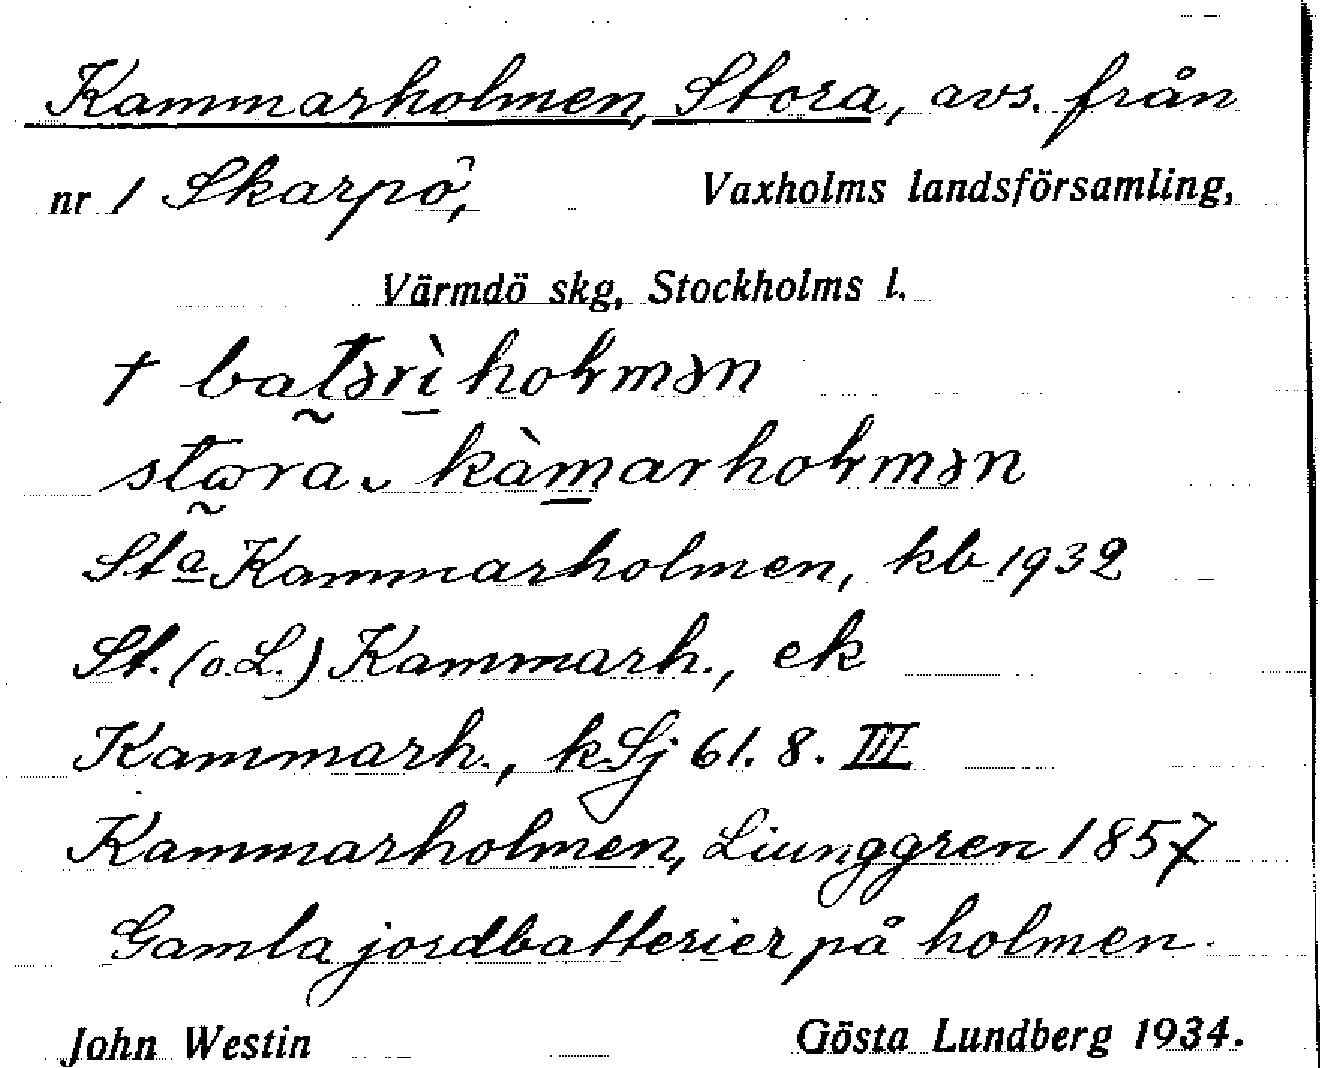 Kammarholmen, Stora, avs. från
nr 1 Skarpö, Vaxholms landsförsamling,
Värmdö skg, Stockholms l.
† batərì hoɫmən
stɷra kàmarhoɫmən
Sta Kammarholmen, kb 1932
St. (o. L.) Kammarh., ek
Kammarh., k Sj 61. 8. III
Kammarholmen, Liunggren 1857
Gamla jordbatterier på holmen.
John Westin Gösta Lundberg 1934.